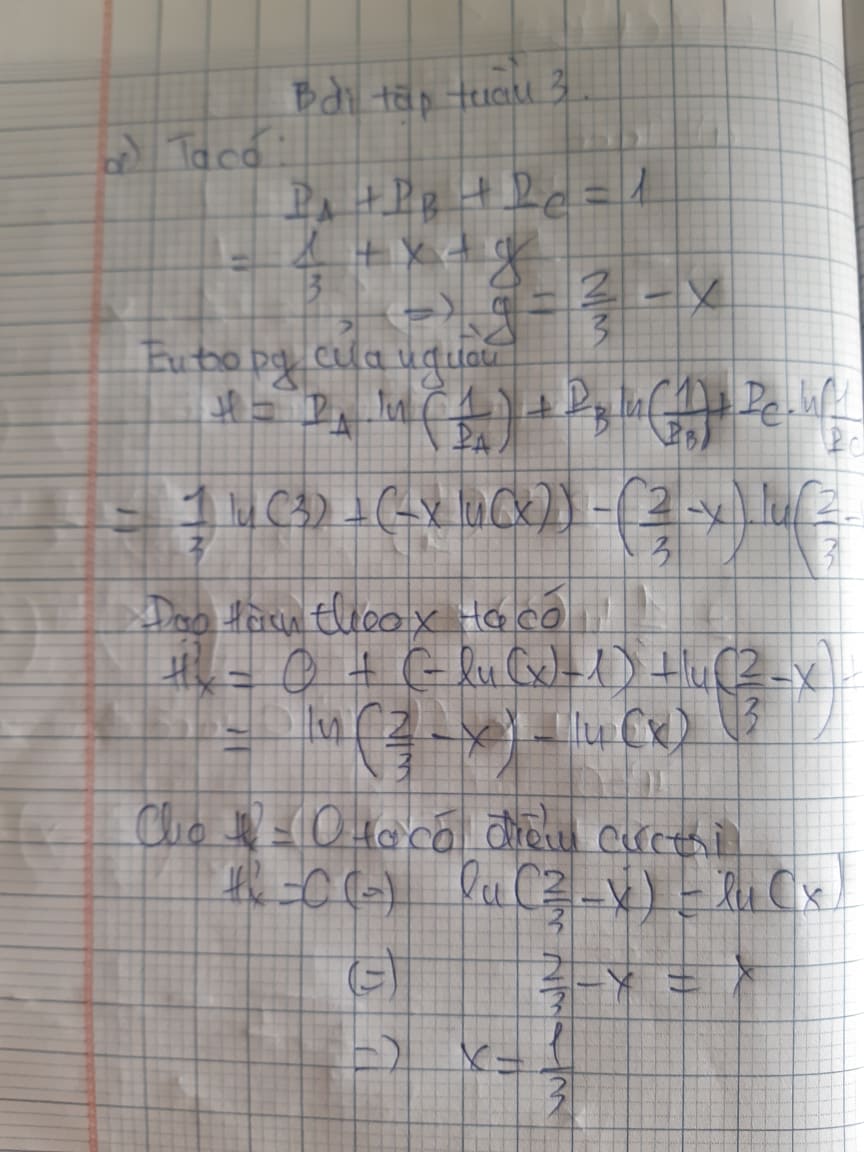 Bài tập tuần 3.
a) Ta có:
P_A + P_B + P_C = 1
= 1/3 + x + y
=> y = 2/3 - x
Entropy của nguồn
H = P_A . ln(1/P_A) + P_B ln(1/P_B) + P_C . ln(1/P_C
= 1/3 ln(3) + (-x ln(x)) - (2/3 - x) . ln(2/3 -
Đạo hàm theo x ta có
H'_x = 0 + (-ln(x) - 1) + ln(2/3 - x) +
= ln(2/3 - x) - ln(x)
Cho H' = 0 ta có điểm cực trị
H'_x = 0 (=) ln(2/3 - x) = ln(x)
(=) 2/3 - x = x
=> x = 1/3